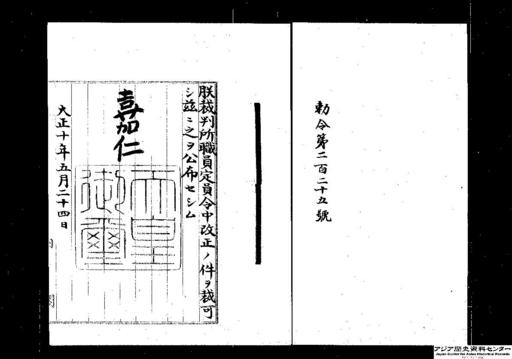 勅令第二百二十五號
朕裁判所職員定員令中改正ノ件ヲ裁可
シ茲ニ之ヲ公布セシム
嘉仁
天皇御璽
大正十年五月二十四日
アジア歴史資料センター
Japan Center for Asian Historical Records